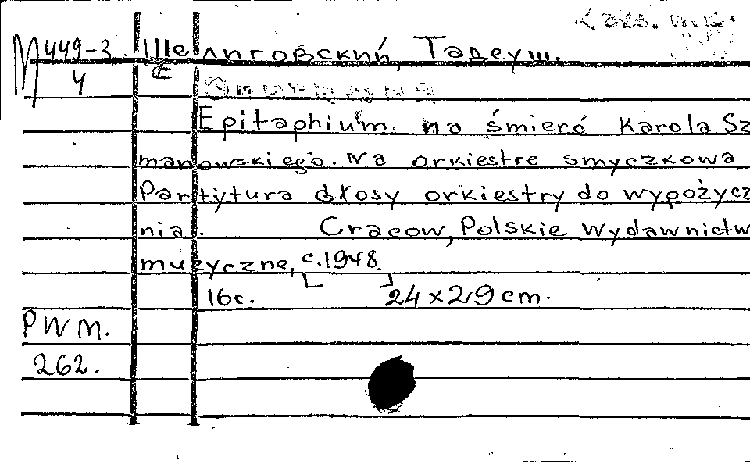 М 449-3 Шелиговский, Тадеуш.
4 Е
Epitaphium. na śmierć Karola Sz
manowskiego. Na orkiestrę smyczkową
Partytura Głosy orkiestry do wypożycz
nia. Cracow, Polskie Wydawnictw
muzyczne, c.1948
16c. 24 x 29 cm.
PWM.
262.